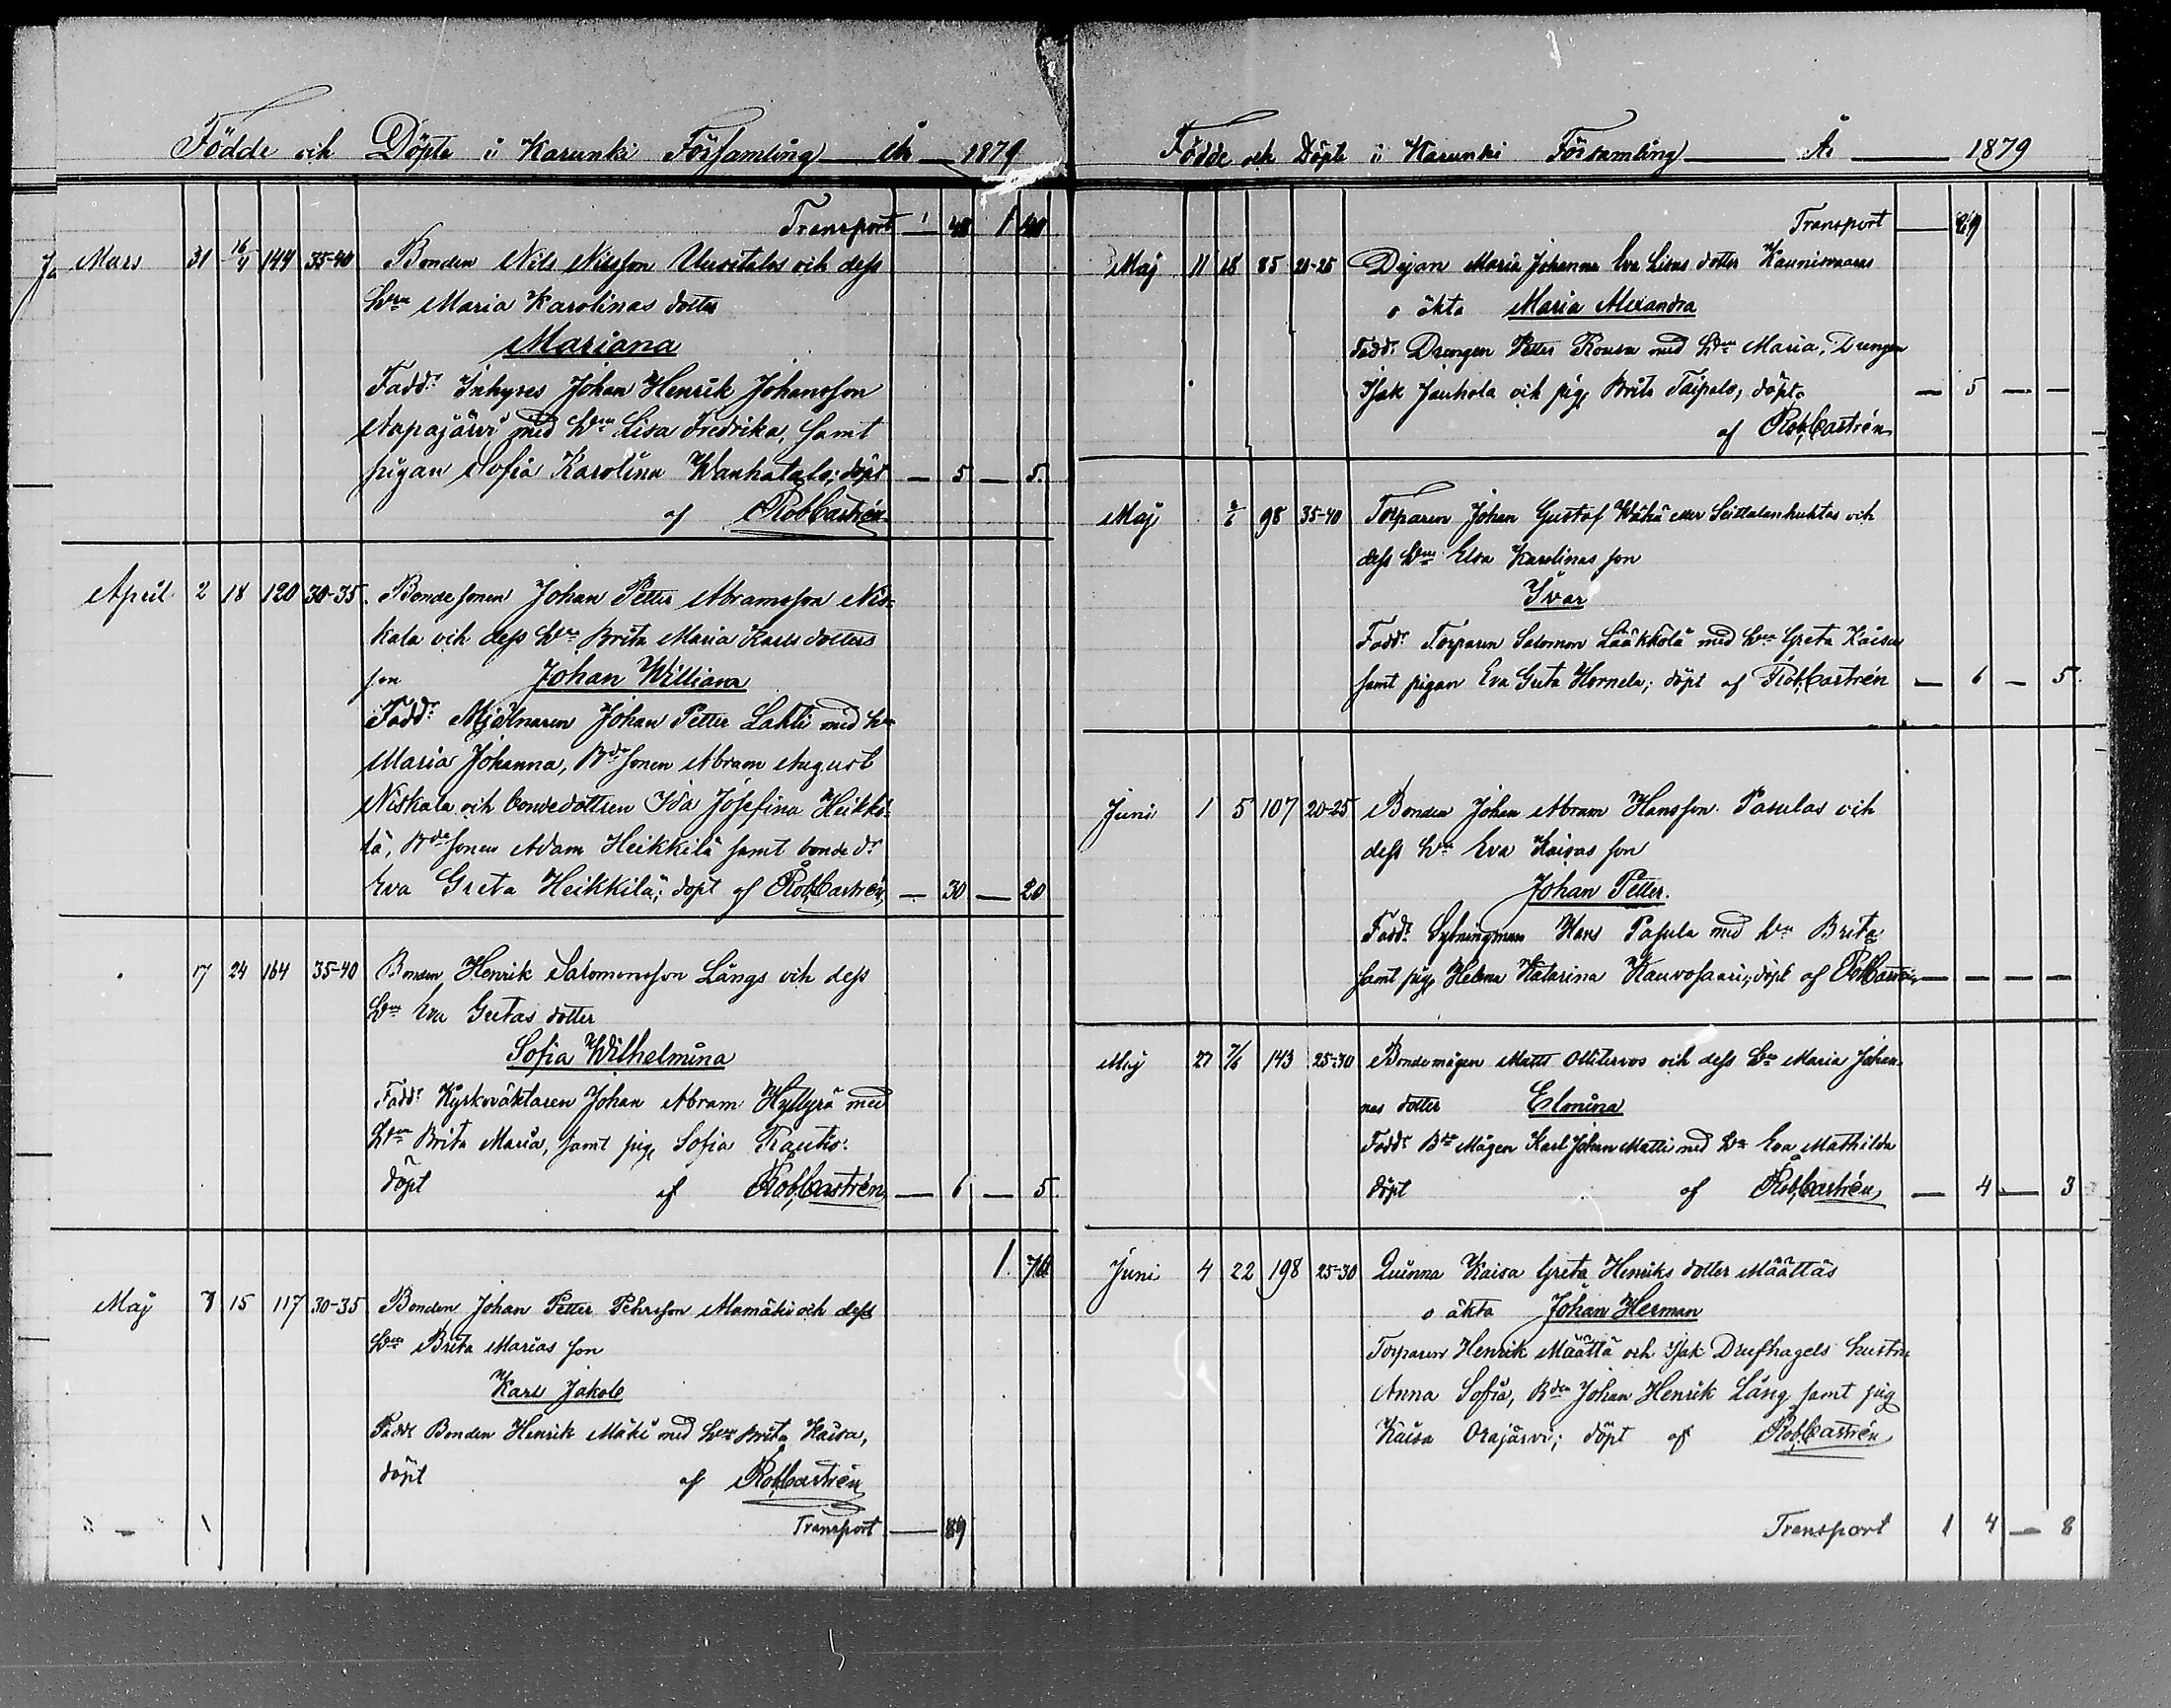 Födde och Döpte i Karunki Församling År 1879
Transport 1 40 1 40
Ja Mars 31 16/4 144 35-40 Bonden Nils Nilsson Uusitalos och dess
hru Maria Karolinas dotter
Mariana
Fadd: Inhyses Johan Henrik Johansson
Napajärvi med hru Lisa Fredrika, samt
pigan Sofia Karolina Wanhatalo; döpt — 5 — 5.
af RobCastrén
April 2 18 120 30-35 Bondesonen Johan Petter Abramsson Nis-
kala och dess hru Brita Maria Karls dotters
son Johan William
Fadd: Mjölnaren Johan Petter Lahti med hru
Maria Johanna, Bdesonen Abram August
Niskala och bondedottren Ida Josefina Heikki-
lä, Bdesonen Adam Heikkilä samt bonde dr
Eva Greta Heikkilä; döpt af RobCastrén — 30 — 20
17 24 164 35-40 Bonden Henrik Salomonsson Längs och dess
hru Eva Gretas dotter
Sofia Wilhelmina
Fadd: Kyrkoväktaren Johan Abram Hyllyrä med
hru Brita Maria, samt pig. Sofia Rautio:
döpt af RobCastrén — 6 — 5.
1. 70
Maj 7 15 117 30-35 Bonden Johan Petter Pehrsson Alamäki och dess
hru Brita Marias son
Karl Jakob
Fadd: Bonden Henrik Mäki med hru Brita Kaisa,
döpt af RobCastrén
Transport — 89
Födde och Döpte i Karunki Församling År 1879
Transport — 89
Maj 11 18 85 20-25 Dejan Maria Johanna Eva Lisas dotter Kaunisvaaras
o äkta Maria Alexandra
Fadd: Drengen Petter Rousu med hru Maria, Drengen
Isak Jauhola och pig. Brita Taipalo, döpt — 5 — —
af RobCastrén
Maj 98 35-40 Torparen Johan Gustaf och
dess hru Elsa Karolinas son
Ivar
Fadd: Torparen Salomon Lääkkölä med hru Greta Kaisa
samt pigan Eva Greta Hornela; döpt af RobCastrén — 6 — 5.
Juni 1 5 107 20-25 Bonden Johan Abram Hansson Pasulas och
dess hru Eva Kaisas son
Johan Petter.
Fadd: Sytningman Hans Pasula med hru Brita
samt pig. Helena Katarina Kauvosaari; döpt af RobCastrén — — — —
Maj 27 7/6 143 25-30 Bondemågen Matts Ollitervos och dess hru Maria Johan-
nas dotter Elmina
Fadd: Bde Mågen Karl Johan Matti med hru Eva Mathilda
döpt af RobCastrén — 4 — 3
Juni 4 22 198 25-30 Qvinna Kaisa Greta Henriks dotter Määttäs
o äkta Johan Herman
Torparen Henrik Määttä och Isak Drufhagels hustru
Anna Sofia, Bden Johan Henrik Läng samt pig
Kaisa Orajärvi; döpt af RobCastrén
Transport 1 4 — 8